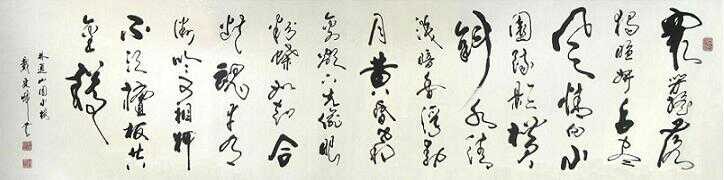 眾芳搖落
獨暄妍占盡
風情向小
園疏影橫
斜水清
淺暗香浮動
月黃昏霜
禽欲下先偷眼
粉蝶如知合
斷魂幸有
微吟可相狎
不須檀板共
金樽
林逋山園小梅